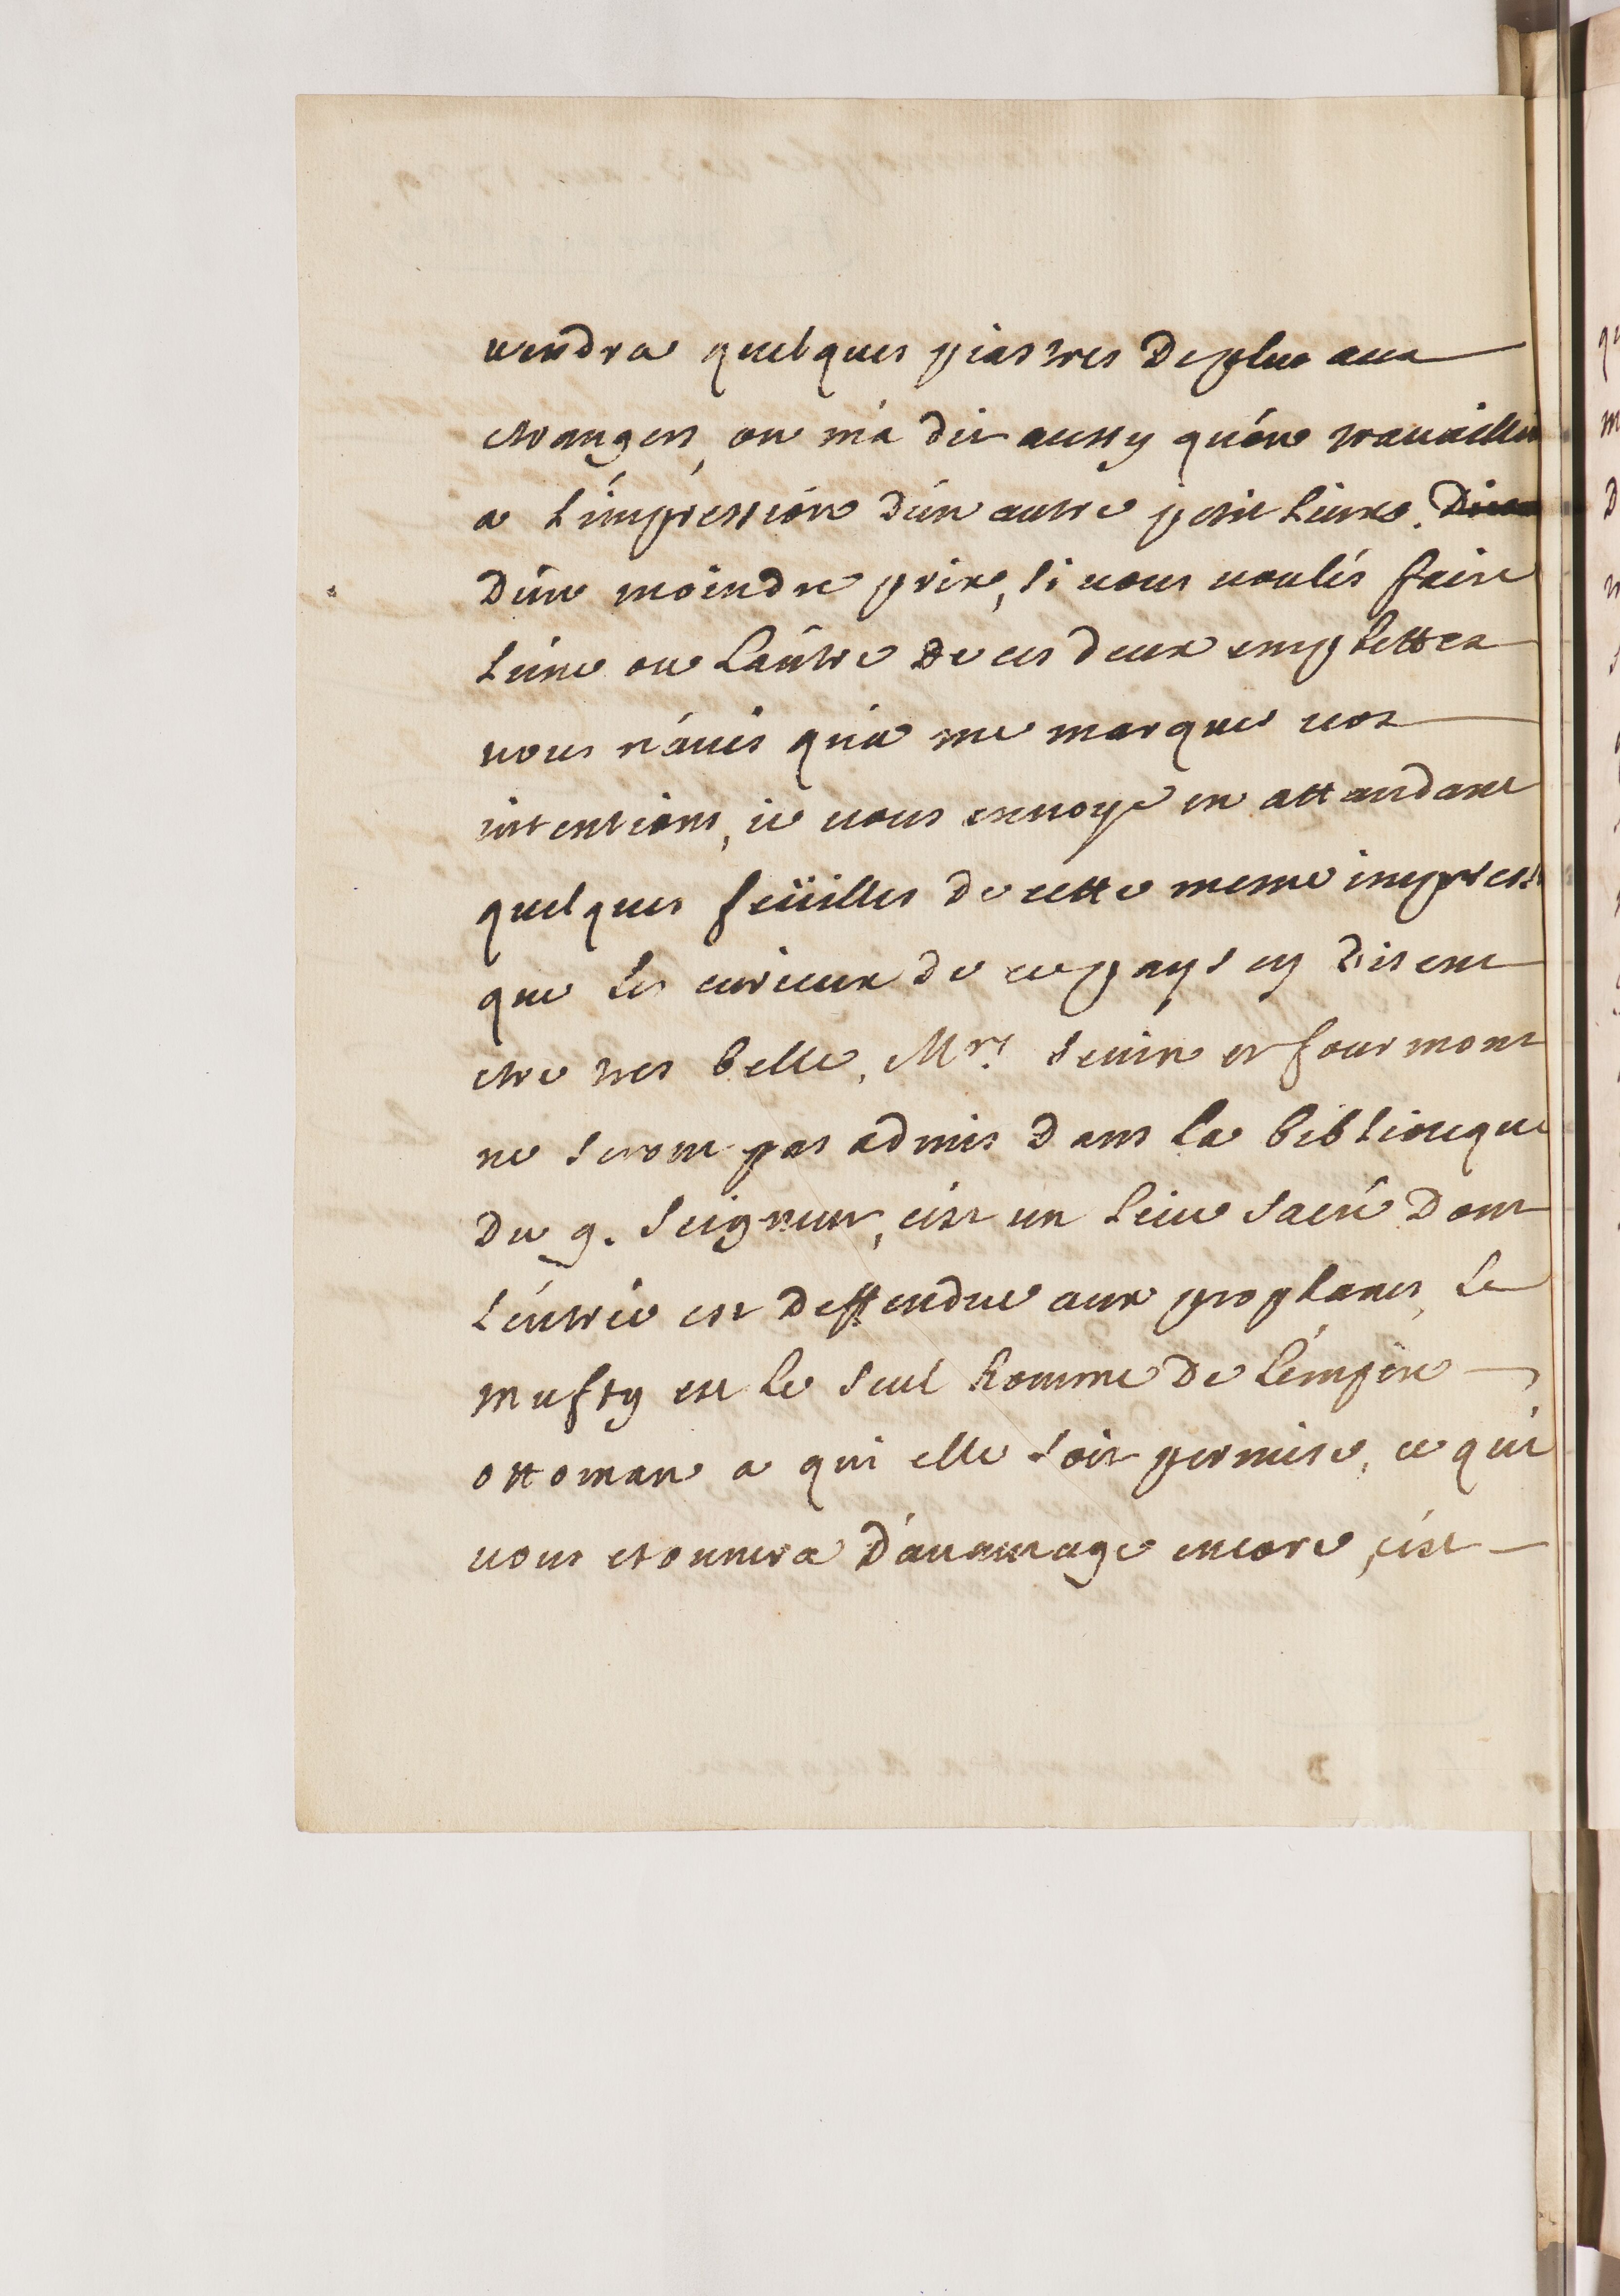 vendra quelques piastres de plus aux
etrangers, on m'a dit aussy qu'on travailloit
a l'impression d'un autre petit livre.
d'un moindre prix, si vous voulés faire
l'une ou l'autre de ces deux emplettes
vous n'avés qu'a me marquer vos
intentions, ie vous envoye en attandant
quelques feüilles de cette mesme impress
que les curieux de ce pays cy disent
etre tres belle, Mrs. Sevin et fourmont
ne seront pas admis dans la biblioteque
du g. seigneur, c'est un lieu sacré dont
l'entrée est deffendue aux prophanes, le
mufty est le seul homme de l'empire
ottoman a qui elle soit permise, ce qui
vous etonnera d'avantage encore, c'est